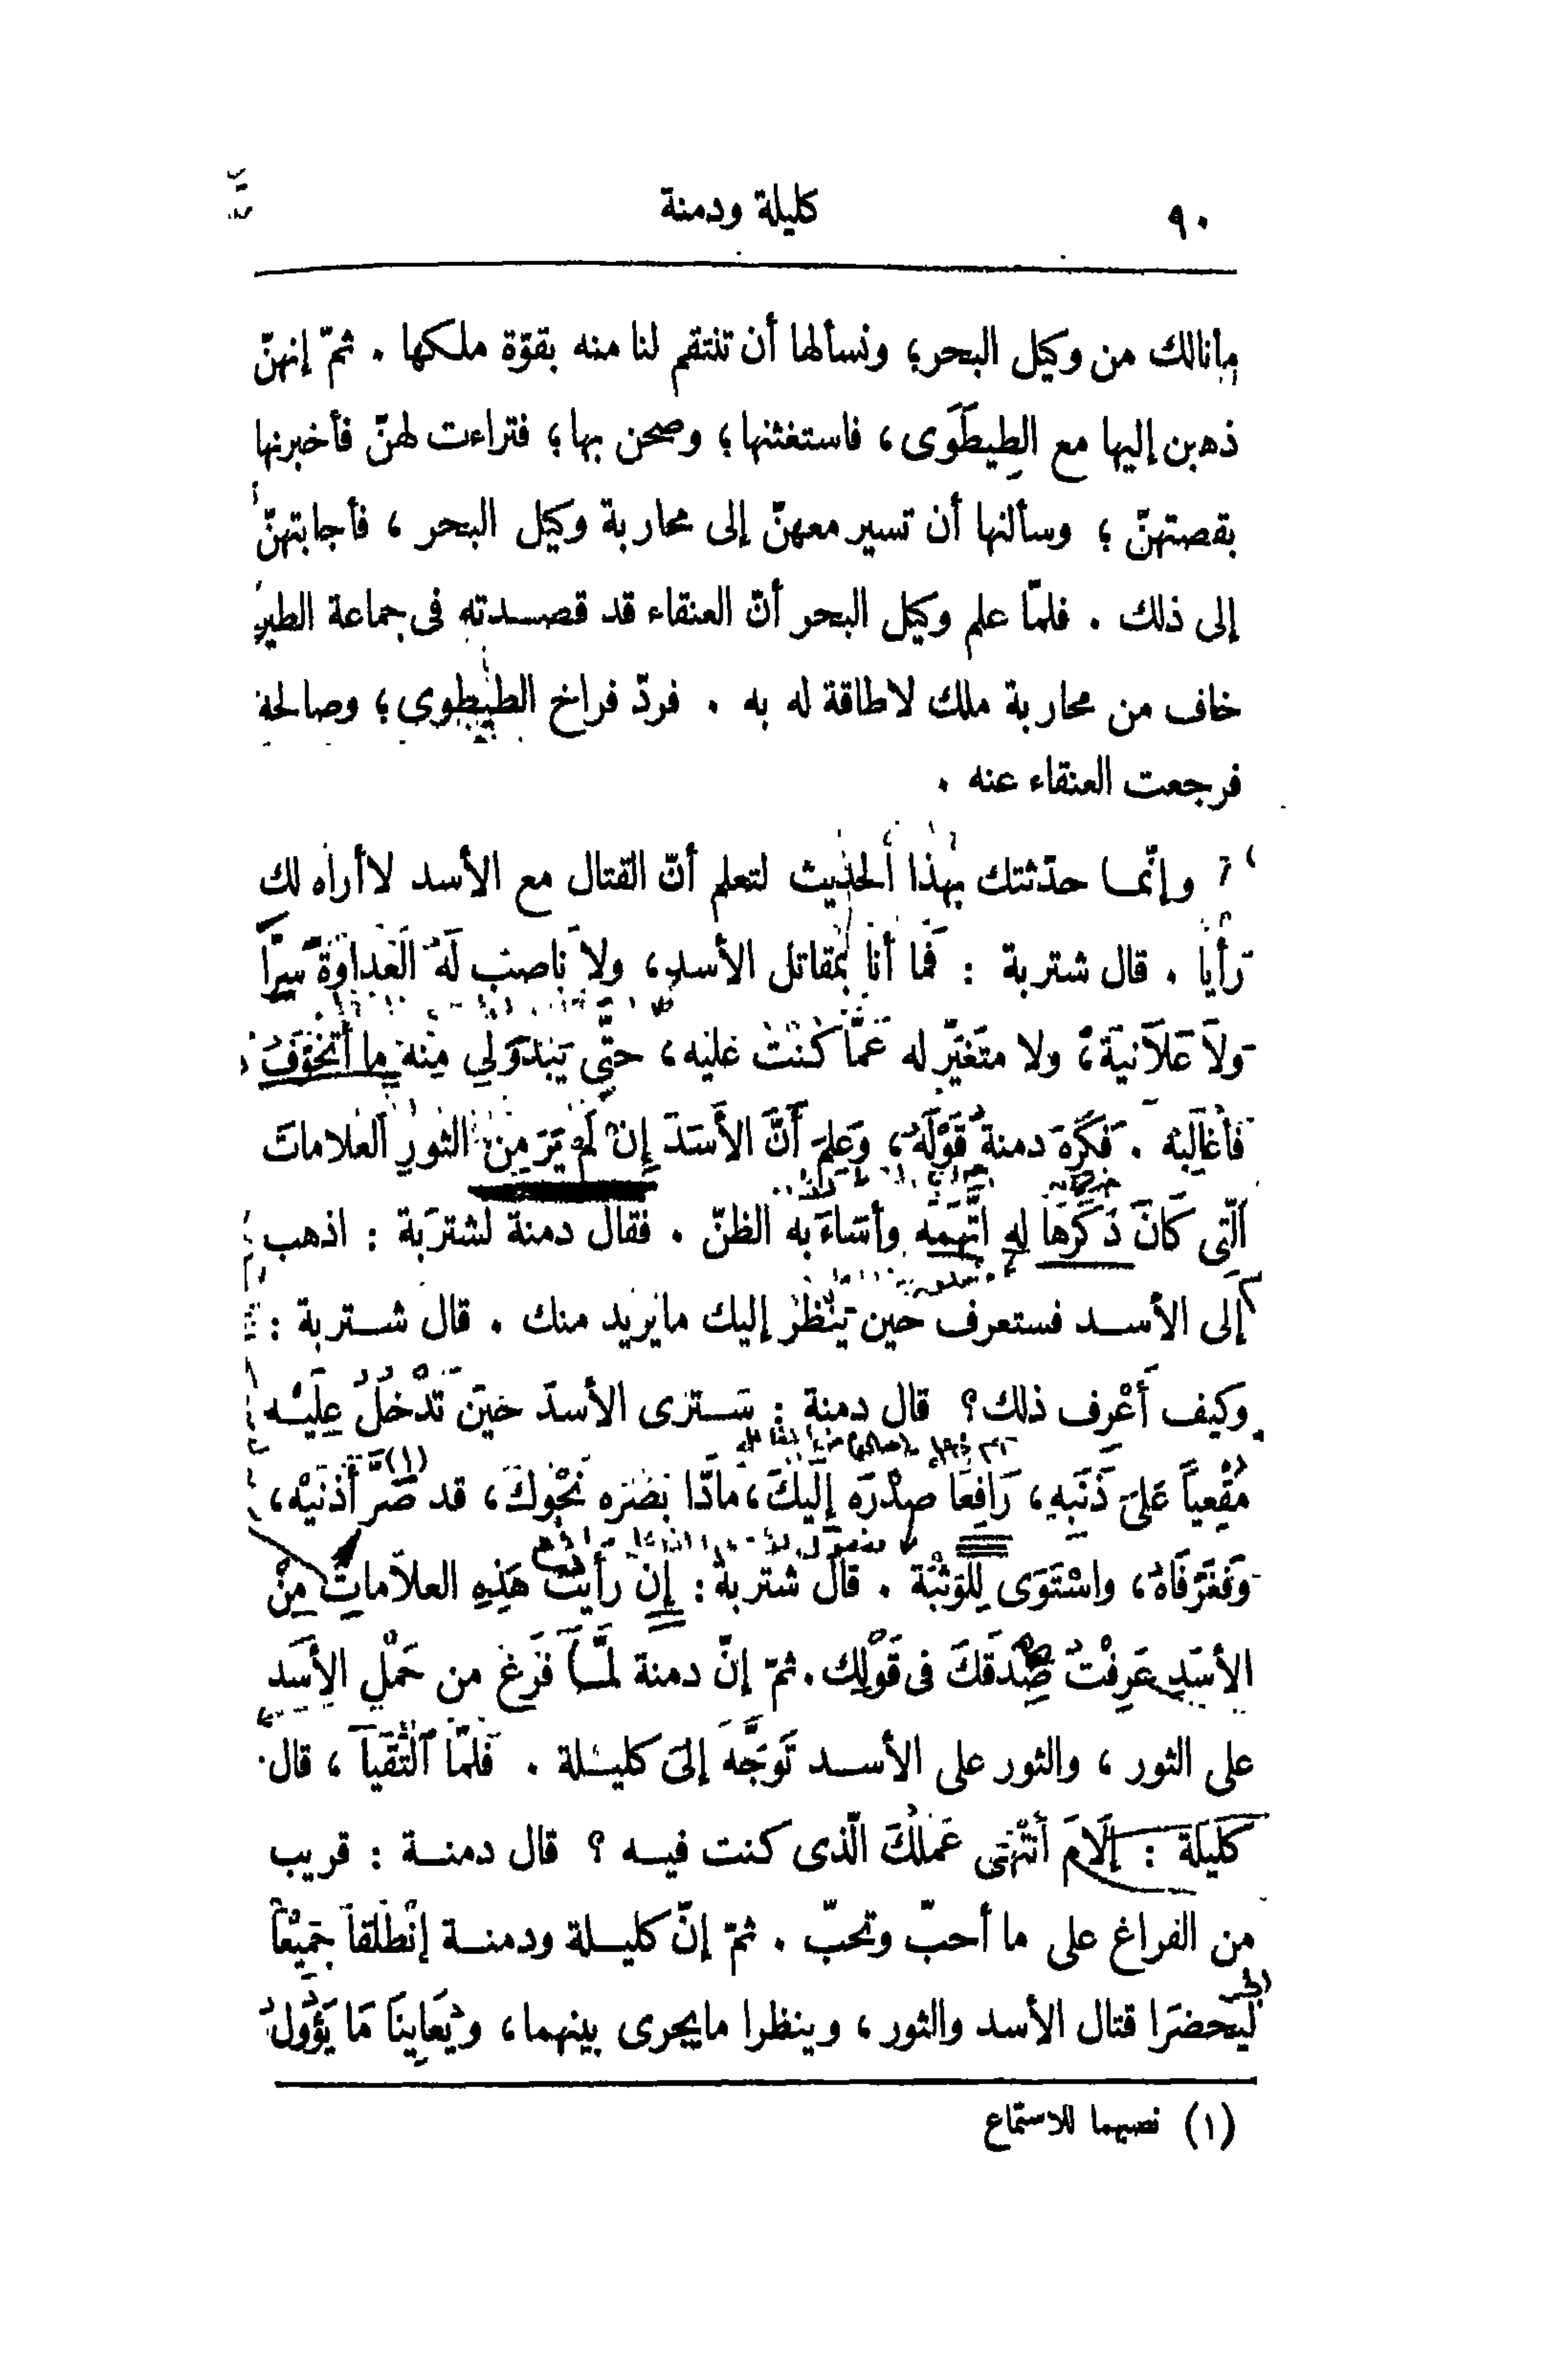 ٩٠ كليلة ودمنة
مانالك من وكيل البحر؛ ونسألها أن تنتقم لنا منه بقوّة ملكها . ثمّ إنهنّ
ذهبن إليها مع الطِيطَوَى، فاستغثنها؛ وصحن بها؛ فتراءت لهنّ فأخبرنها
بقصتهنّ ؛ وسألنها أن تسير معهنّ إلى محاربة وكيل البحر ، فأجابتهنّ
إلى ذلك . فلمّا علم وكيل البحر أنّ العنقاء قد قصدته فى جماعة الطير
خاف من محاربة ملك لاطاقة له به . فردّ فراخ الطيطوى؛ وصالحه
فرجعت العنقاء عنه .
وإنّما حدّثتك بهذا الحديث لتعلم أنّ القتال مع الأسد لاأراه لك
رأيا . قال شتربة : فما أنا بمقاتل الأسد، ولا ناصب لَهُ الْعَداوَةَ سِرًّا
ولاَ عَلاَنيَة، ولا متَغيّر له عَمَّا كُنْتُ عليه، حتَّى يَبْدوَ لِي مِنْهُ ما أَتَخَوَّفُ
فأغالبه . فكَرِهَ دمنةُ قَوْلَهُ، وَعلِمَ أَنَّ الأَسَدَ إِنْ لَمْ يَرَ مِن الثورِ العَلاماتِ
الّتِى كَانَ ذَكَرَها له اتَّهَمَه وأسَاءَ به الظنّ . فقال دمنة لشتربَة : اذهب
إلى الأسد فستعرف حين يَنْظُرُ إليك مايريد منك . قال شتربة :
وكيف أَعْرِف ذلك؟ قال دمنة : سَترى الأسدَ حينَ تَدْخُلُ عليْه
مُقْعِياً عَلَى ذَنَبِهِ، رَافِعًا صدْرَه إِلَيْكَ، مادًّا بصَرَه نَحْوَكَ، قد صَرَّ(١) أُذُنَيْه،
وَفَغَرَ فَاهُ، واسْتَوَى لِلْوَثْبَة . قال شتربة : إن رَأَيْتُ هَذِهِ العلاّماتِ مِنْ
الأسَدِ عَرِفْتُ صِدْقَكَ فى قَوْلِكَ . ثمّ إنّ دمنة لمَّا فَرَغ من حَمْلِ الأسَد
على الثور ، والثور على الأسد تَوَجَّهَ إلىَ كليلة . فَلمّا الْتَقَيَا ، قال
كَليلَة : إلَامَ انْتَهَى عَمَلُكَ الّذى كنت فيه ؟ قال دمنة : قريب
من الفراغ على ما أحبّ وتحبّ . ثمّ إنّ كليلة ودمنة إنْطَلَقَا جَمِيْعاً
ليَحضرَا قتال الأسد والثور ، وينظرا مايجرى بينهما، ويُعَايِنَا مَا يَؤُولُ
(١) نصبهما للاستماع